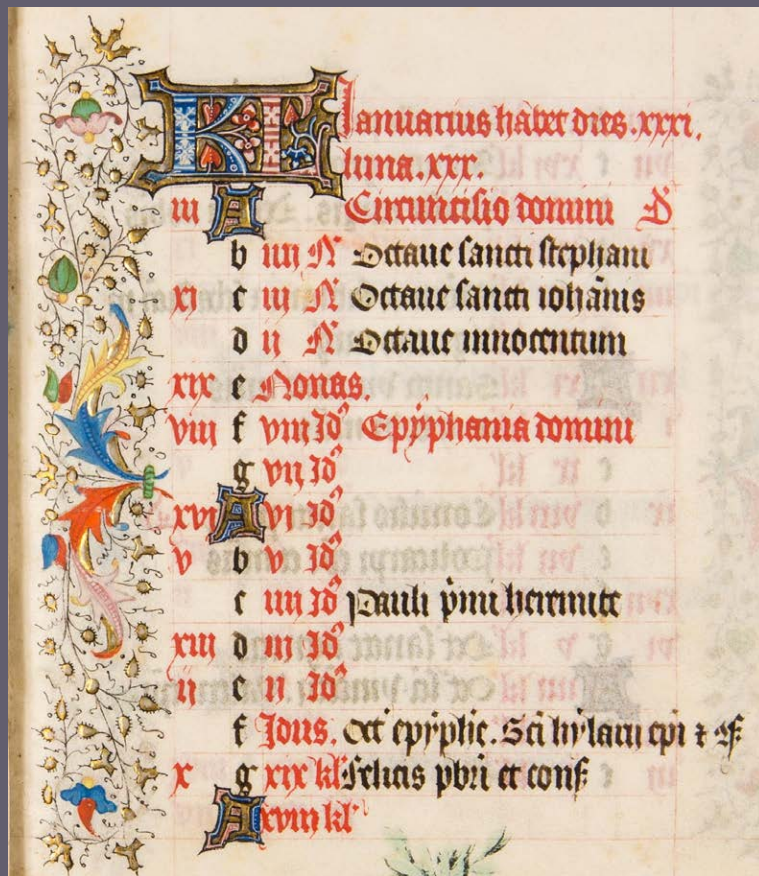 KL Ianuarius habet dies .xxxi.
luna .xxx.
iii A Circuncisio domini D
b iiii N Octaue sancti stephani
xi c iii N Octaue sancti iohānis
d ii N Octaue innocentum
xix e Nonas.
viii f viii Id9 Epyphania domini
g vii Id9
xvi A vi Id9
v b v Id9
c iiii Id9 Pauli p̄mi heremite
xiii d iii Id9
ii e ii Id9
f Idus. Oct epyphie. Sci hylarii epi ⁊ 9f
x g xix kl' Felicis pbri et conf.
A xviii kl'